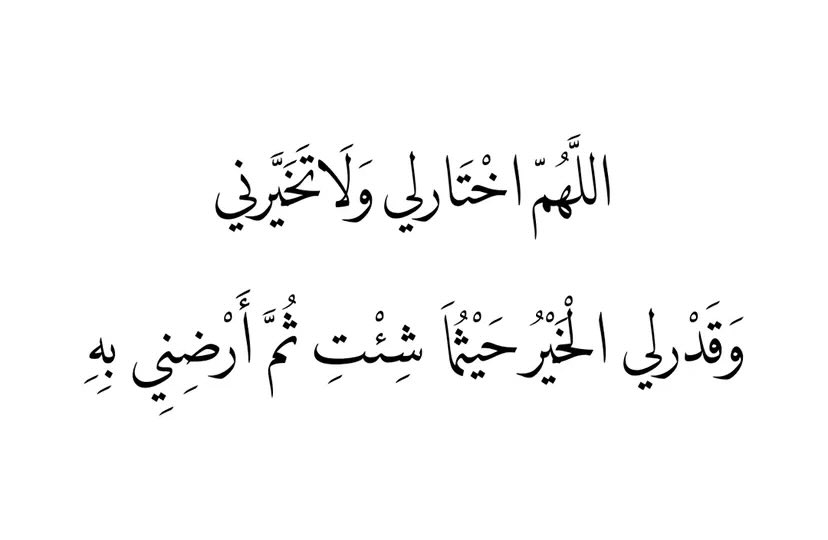 اللَّهُمّ اخْتَارلي وَلَا تَخَيَّرني
وَقَدْرلي الْخَيْرُ حَيْثُمَا شِئْتِ ثُمَّ أَرْضِنِي بِهِ